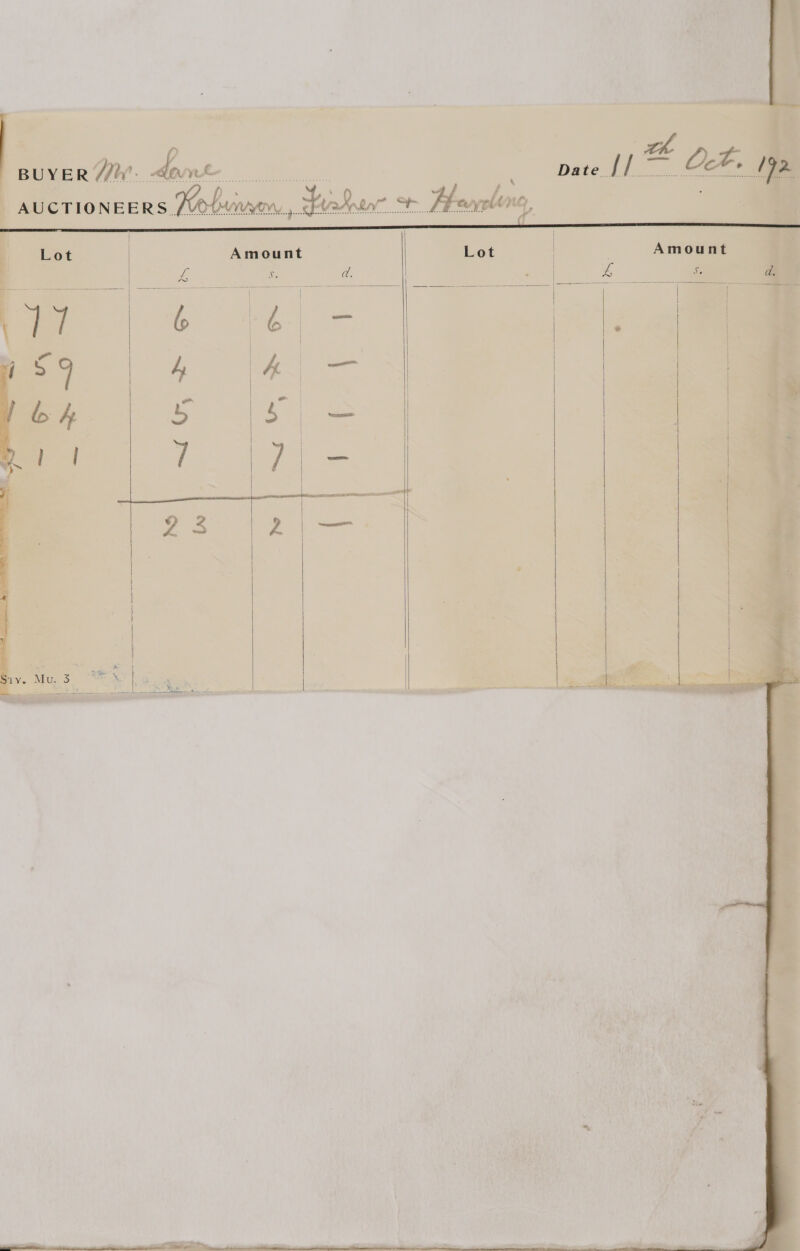 BUYER Mr. Lane Date 11th Oct. 192
AUCTIONEERS Robinson, Fisher & Harding,
Lot Amount Lot Amount
£ s. d. £ s. d.
77 6 6 —
159 4 4 —
164 5 5 —
211 7 7 —
23 2 —
Sty. Mu. 3